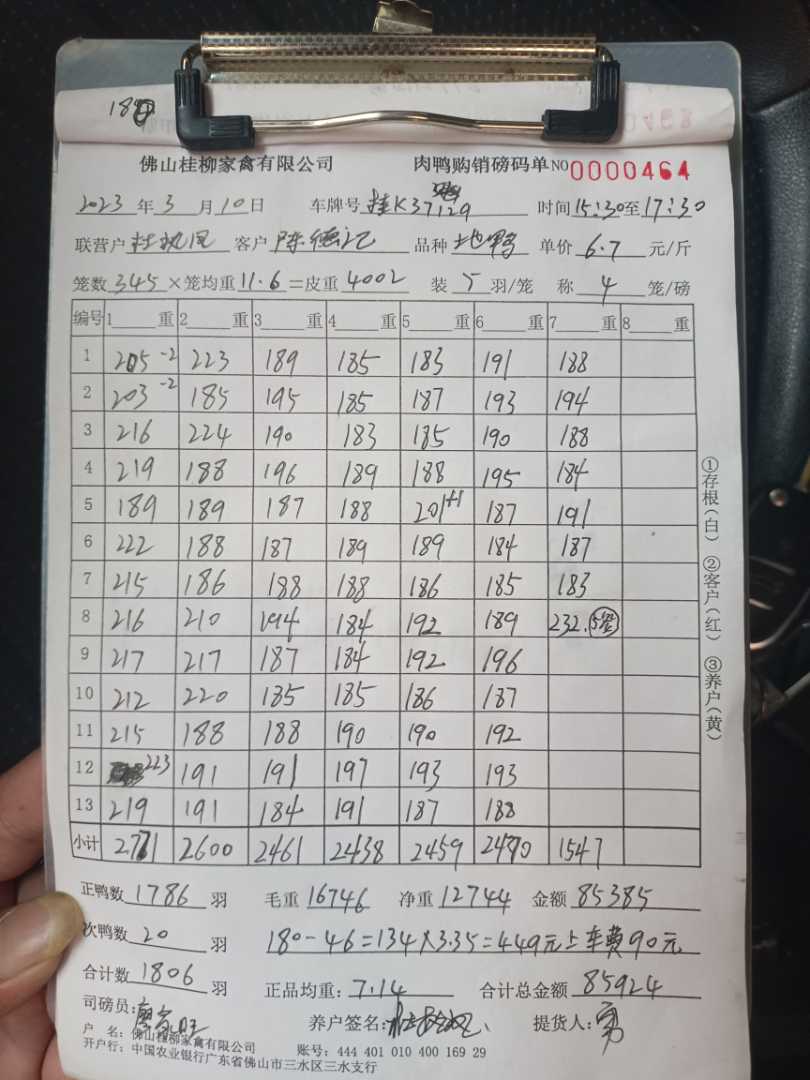 188
佛山桂柳家禽有限公司 肉鸭购销磅码单 NO 0000464
2023 年 3 月 10 日 车牌号 桂K37129 时间 15:30 至 17:30
联营户 客户 陈德记 品种 土也鸭 单价 6.7 元/斤
笼数 345 ×笼均重 11.6 =皮重 4002 装 5 羽/笼 称 4 笼/磅
编号 1 重 2 重 3 重 4 重 5 重 6 重 7 重 8 重
1 205-2 223 189 185 183 191 188
2 203-2 185 195 185 187 193 194
3 216 224 190 183 185 190 188
4 219 188 196 189 188 195 184
5 189 189 187 188 201+1 187 191
6 222 188 187 189 189 184 187
7 215 186 188 188 186 185 183
8 216 210 194 184 192 189 232.5笼
9 217 217 187 184 192 196
10 212 220 185 185 186 187
11 215 188 188 190 190 192
12 223 191 191 197 193 193
13 219 191 184 191 187 188
小计 2771 2600 2461 2438 2459 2470 1547
正鸭数 1786 羽 毛重 16746 净重 12744 金额 85385
次鸭数 20 羽 180-46=134×3.35=449元上车费90元
合计数 1806 羽 正品均重: 7.14 合计总金额 85924
司磅员: 养户签名: 提货人:
户 名: 佛山桂柳家禽有限公司 账号: 444 401 010 400 169 29
开户行: 中国农业银行广东省佛山市三水区三水支行
①存根(白) ②客户(红) ③养户(黄)